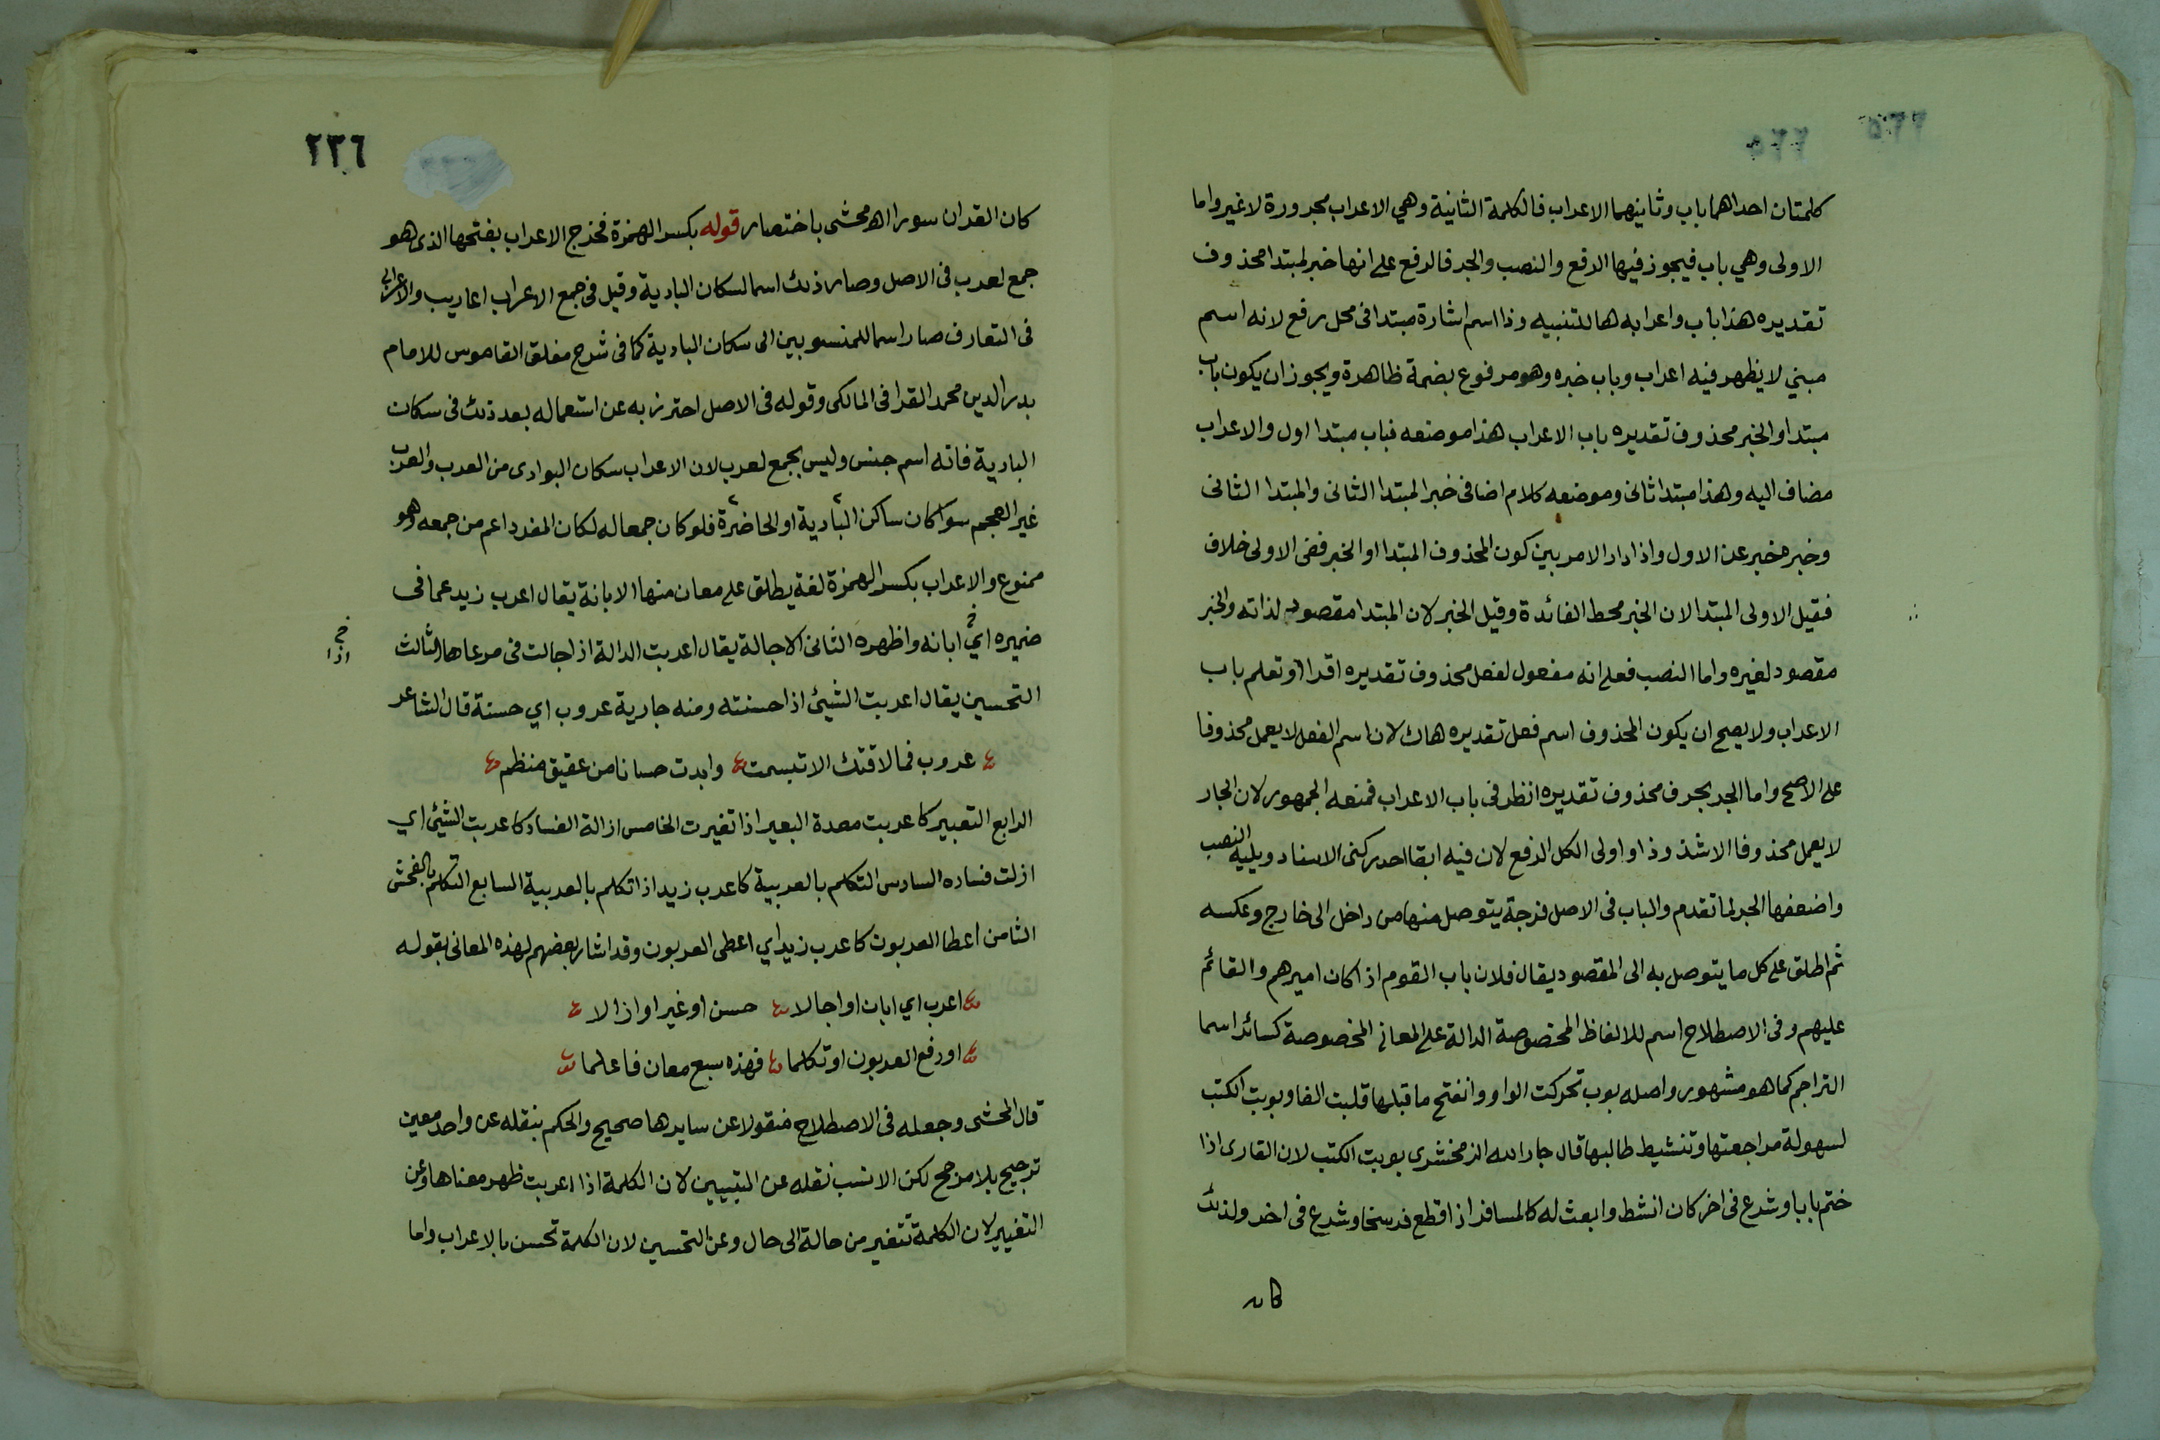 كلمتان احداهما باب وثاينهما الاعراب فالكلمة الثانية وهي الاعراب مجرورة لاغير واما
الاولى وهي باب فيجوز فيها الرفع والنصب والجر فالرفع على انها خبر لمبتدا محذوف
تقديره هذا باب واعرابه ها للتنبيه وذا اسم اشارة مبتدا فى محل رفع لانه اسم
مبني لا يظهر فيه اعراب وباب خبره وهو مرفوع بضمة ظاهرة ويجوز ان يكون باب
مبتدا والخبر محذوف تقديره باب الاعراب هذا موضعه فباب مبتدا اول والاعراب
مضاف اليه وهذا مبتدا ثانى وموضعه كلام اضافى خبر المبتدا الثانى والمبتدا الثانى
وخبره خبر عن الاول واذا دار الامر بين كون المحذوف المبتدا او الخبر ففى الاولى خلاف
فقيل الاولى المبتدا لان الخبر محط الفائدة وقيل الخبر لان المبتدا مقصود لذاته والخبر
مقصود لغيره واما النصب فعلى انه مفعول لفعل محذوف تقديره اقرا او تعلم باب
الاعراب ولا يصح ان يكون المحذوف اسم فعل تقديره هاك لان اسم الفعل لا يعمل محذوفا
على الاصح واما الجر بحرف محذوف تقديره انظر فى باب الاعراب فمنعه الجمهور لان الجار
لا يعمل محذوفا الا شذوذا واولى الكل الرفع لان فيه ابقا احد ركنى الاسناد ويليه النصب
واضعفها الجر لما تقدم والباب فى الاصل فرجة يتوصل منها من داخل الى خارج وعكسه
ثم اطلق على كل ما يتوصل به الى المقصود يقال فلان باب القوم اذا كان اميرهم والقائم
عليهم وفى الاصطلاح اسم للالفاظ المخصوصة الدالة على المعانى المخصوصة كسائر اسما
التراجم كما هو مشهور واصله بوب تحركت الواو وانفتح ما قبلها قلبت الفا وبوبت الكتب
لسهولة مراجعتها وتنشيط طالبها قال جار الله الزمخشرى بوبت الكتب لان القارى اذا
ختم بابا وشرع فى اخر كان انشط وابعث له كالمسافر اذا قطع فرسخا وشرع فى اخر ولذلك
كان
٢٣٦
كان القران سورا اه محشى باختصار قوله بكسر الهمزة فخرج الاعراب بفتحها الذى هو
جمع لعرب فى الاصل وصار ذلك اسما لسكان البادية وقيل فى جمع الاعراب اعاريب والاعرابى
فى التعارف صار اسما للمنسوبين الى سكان البادية كما فى شرح مغلق القاموس للامام
بدر الدين محمد القرافى المالكى وقوله فى الاصل احترز به عن استعماله بعد ذلك فى سكان
البادية فانه اسم جنس وليس بجمع لعرب لان الاعراب سكان البوادى من العرب والعرب
غير العجم سوا كان ساكن البادية او الحاضرة فلو كان جمعا له لكان المفرد اعم من جمعه وهو
ممنوع والاعراب بكسر الهمزة لغة يطلق على معان منها الابانة يقال اعرب زيد عما فى
ضميره اي ابانه واظهره الثانى الاجالة يقال اعربت الدابة اذ اجالت فى مرعاها الثالث
اذا
التحسين يقال اعربت الشيئ اذا حسنته ومنه جارية عروب اي حسنة قال الشاعر
عروب فما لاقتك الا تبسمت وابدت حسانا من عقيق منظم
الرابع التغيير كاعربت معدة البعير اذا تغيرت الخامس ازالة الفساد كاعربت الشيئ اي
ازلت فساده السادس التكلم بالعربية كاعرب زيد اذا تكلم بالعربية السابع التكلم بالفحش
الثامن اعطا العربون كاعرب زيد اي اعطى العربون وقد اشار بعضهم لهذه المعانى بقوله
اعرب اي ابان او اجالا حسن او غير او ازالا
او رفع العربون او تكلما فهذه سبع معان فاعلما
قال المحشى وجعله فى الاصطلاح منقولا عن سايرها صحيح والحكم بنقله عن واحد معين
ترجيح بلا مرجح لكن الانسب نقله عن التبيين لان الكلمة اذا اعربت ظهر معناها وعن
التغيير لان الكلمة تتغير من حالة الى حال وعن التحسين لان الكلمة تحسن بالاعراب واما